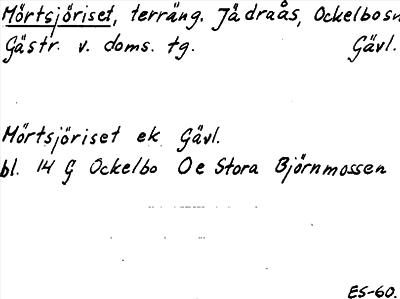 Mörtsjöriset, terräng. Jädraås, Ockelbo sn
Gästr. v. doms. tg. Gävl.
Mörtsjöriset ek Gävl.
bl. 14 G Ockelbo 0e Stora Björnmossen
ES-60.